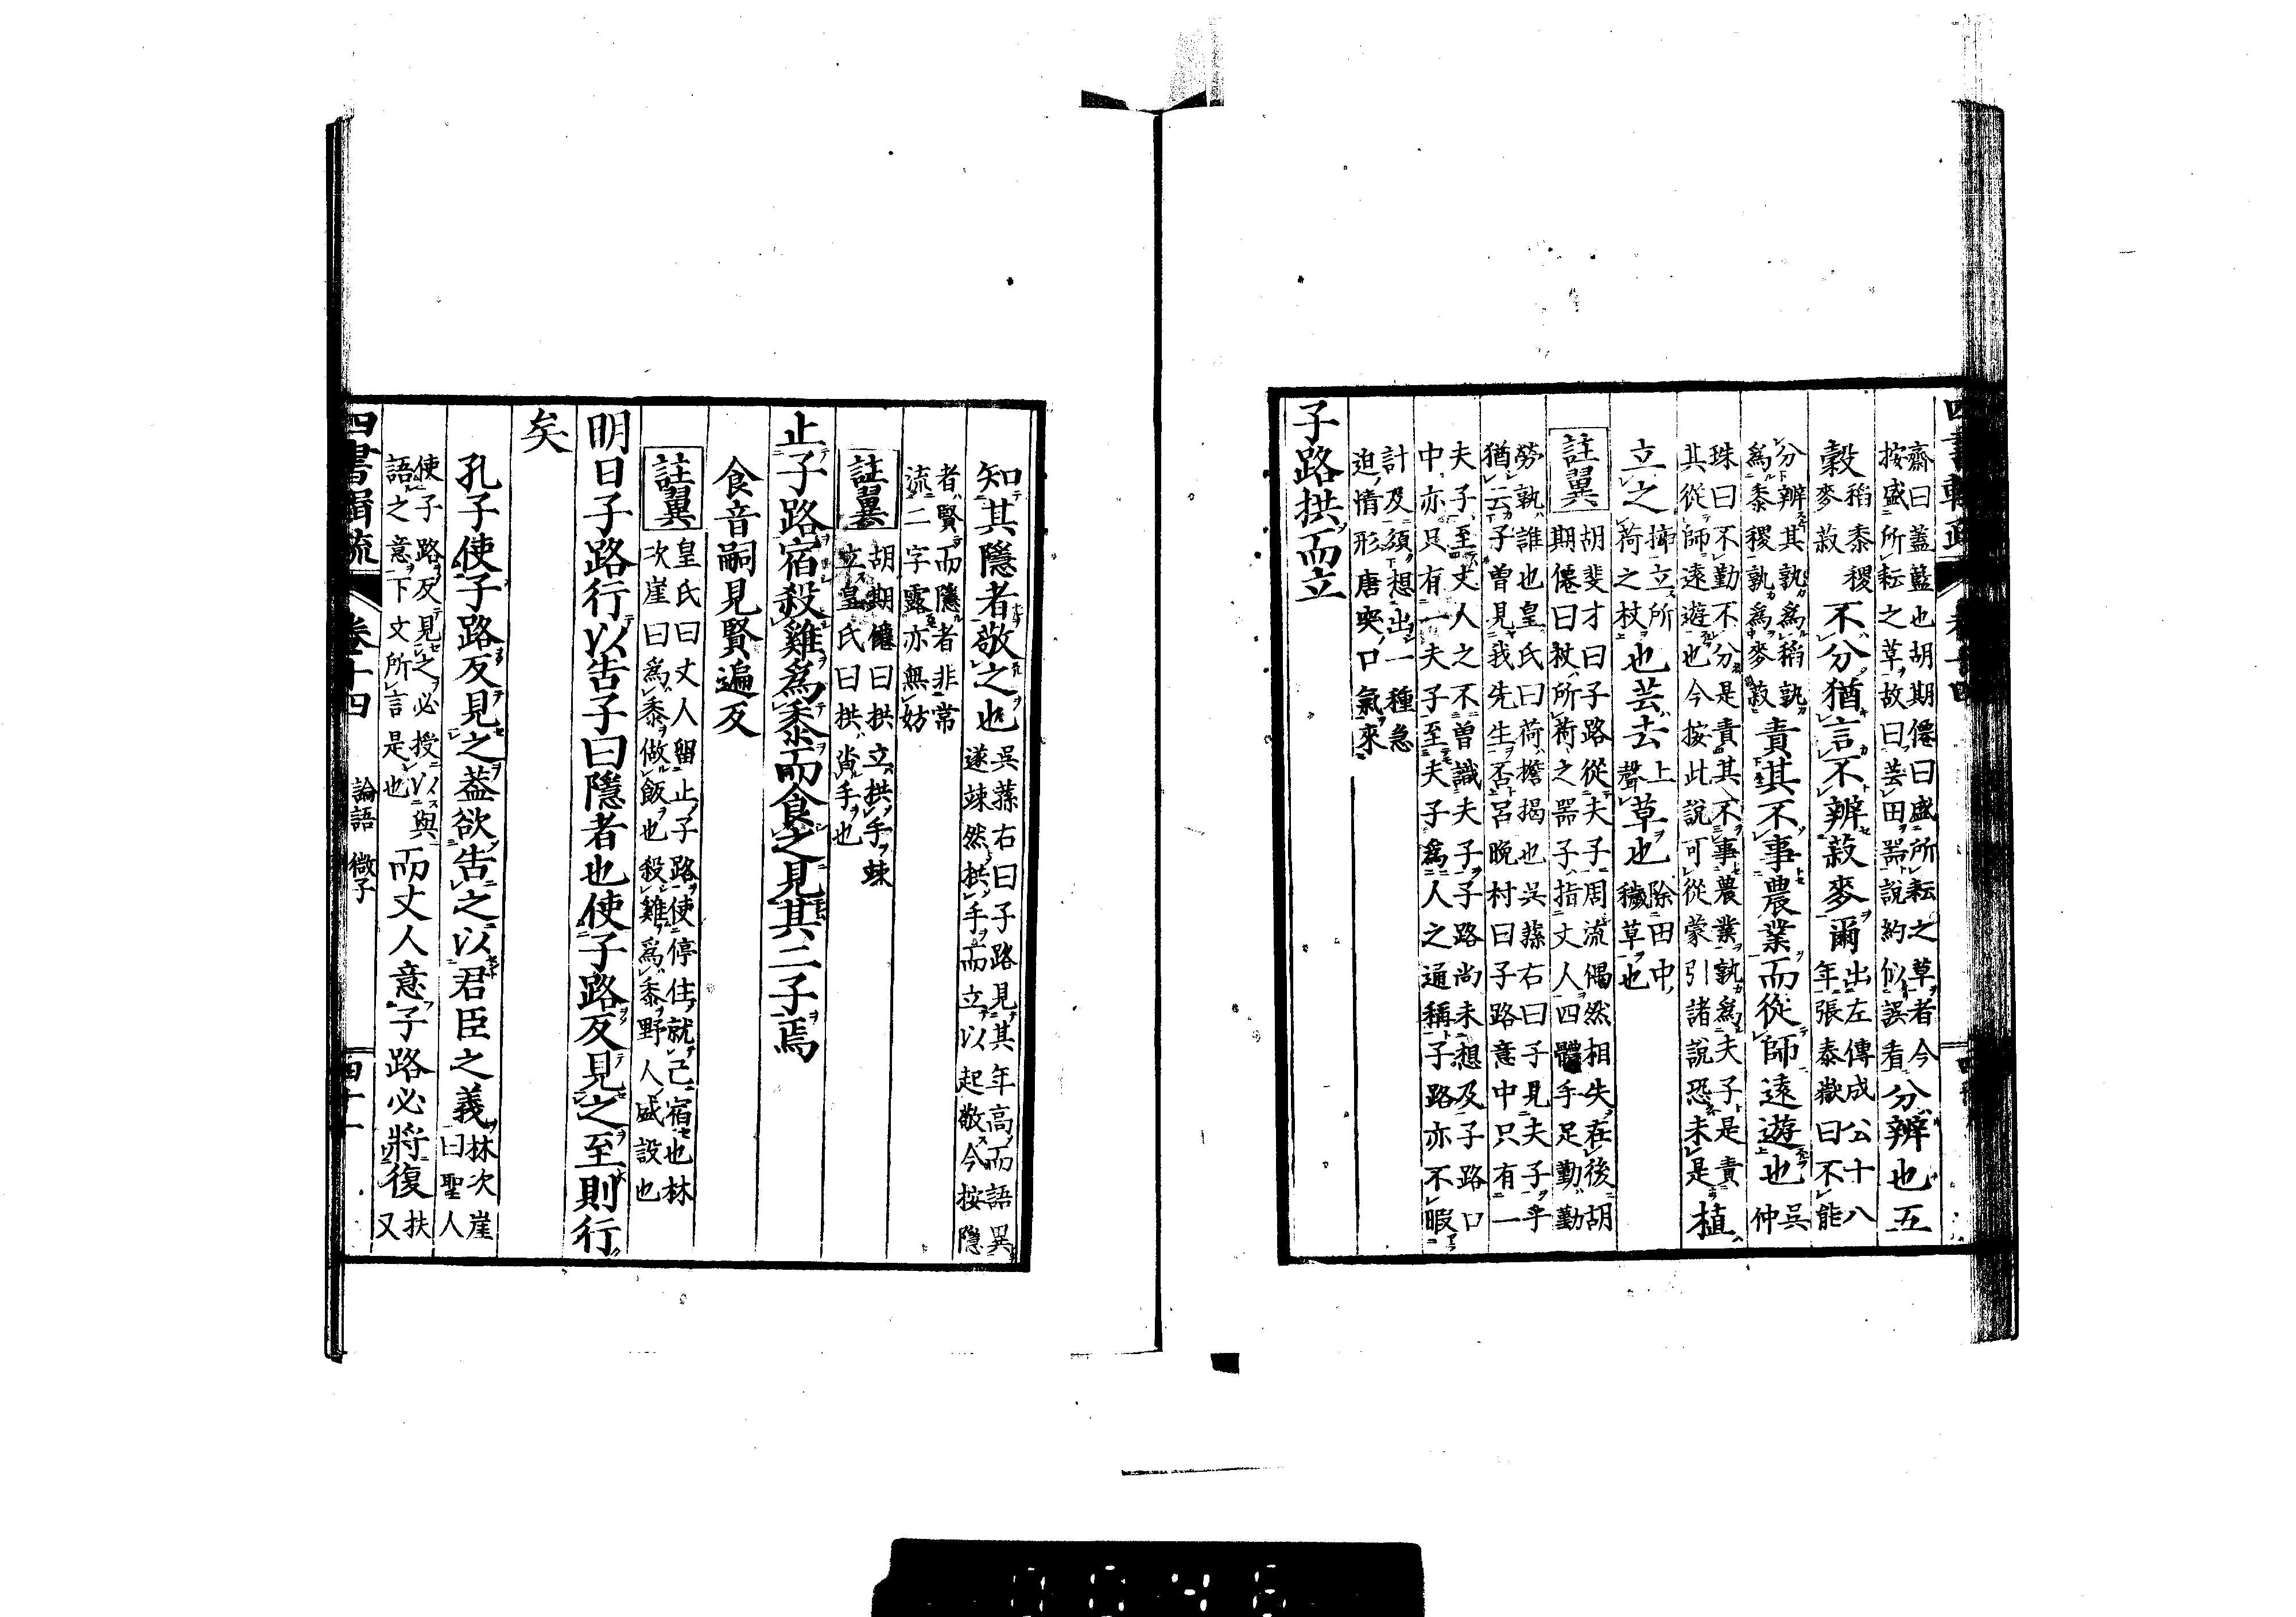 齋曰蓋籃也胡期僊曰盛所耘之草者今
按盛所耘之草故曰芸田器說約似誤看 分辨也五
穀 稻黍稷
麥菽 不分猶言不辨菽麥爾 出左傳成公十八
年張泰嶽曰不能
分辨其孰爲稻孰
爲黍稷孰爲麥菽 責其不事農業而從師遠遊也 吳
仲
珠曰不勤不分是責其不事農業孰爲夫子是責
其從師遠遊也今按此說可從蒙引諸說恐未是 植
立之 插立所
荷之杖 也芸去 上
聲 草也 除田中
穢草也
註翼 胡斐才曰子路從夫子周流偶然相失在後胡
期僊曰杖所荷荷之器子指丈人四體手足勤勤
勞孰誰也皇氏曰荷擔揭也吳蓀右曰子見夫子乎
猶云子曾見我先生否呂晚村曰子路意中只有一
夫子至丈人之不曾識夫子子路尚未想及子路口
中亦只有一夫子至夫子爲人之通稱子路亦不暇
計及須想出一種急
迫情形唐突口氣來
子路拱而立
知其隱者敬之也 吳蓀右曰子路見其年高而語異
遂竦然拱手而立以起敬今按隱
者賢而隱者非常
流二字露亦無妨
註翼 胡期僊曰拱立拱手竦
立皇氏曰拱沓手也
止子路宿殺雞爲黍而食之見其二子焉
食音嗣見賢遍反
註翼 皇氏曰丈人留止子路使停住就己宿也林
次崖曰爲黍做飯也殺雞爲黍野人盛設也
明日子路行以吿子曰隱者也使子路反見之至則行
矣
孔子使子路反見之蓋欲吿之以君臣之義 林次崖
曰聖人
使子路反見之必授以與
語之意下文所言是也 而丈人意子路必將復 扶
又
四書輯疏 卷十四 論語 微子